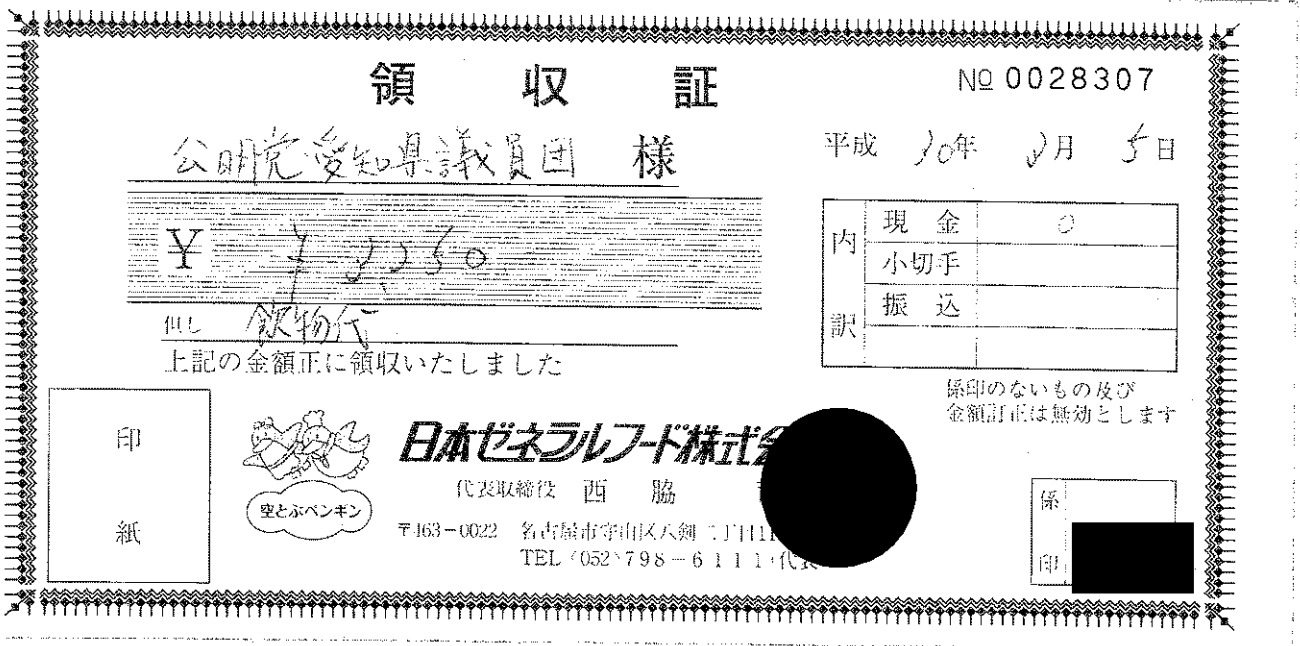 領収証
№ 0028307
公明党愛知県議員団 様
平成 20年 2月 5日
¥ ¥2250
但し 飲物代
上記の金額正に領収いたしました
内訳
現金 0
小切手
振込
係印のないもの及び
金額訂正は無効とします
印紙
空とぶペンギン
日本ゼネラルフード株式会
代表取締役 西脇
〒463-0022 名古屋市守山区八剣二丁目
TEL (052) 798-6111 代表
係印